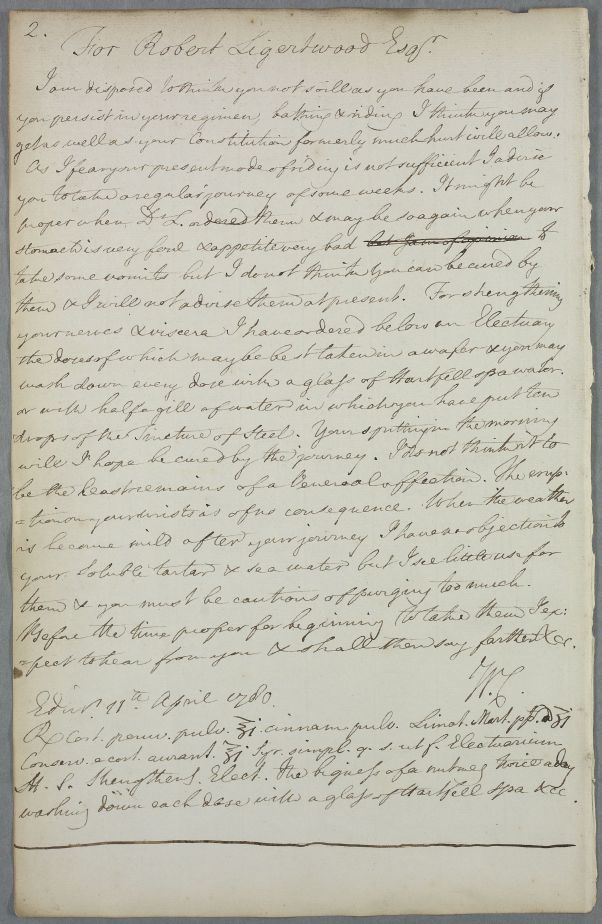 2.
For Robert Ligertwood Esqr.
I am disposed to think you not so ill as you have been and if
you persist in your regimen, bathing & riding I think you may
get as well as your Constitution formerly much hurt will allow.
As I fear your present mode of riding is not sufficient I advise
you to take a regular journey of some weeks. It might be
proper when Dr L. ordered them & may be so again when your
stomach is very foul & appetite very bad but I am of opinion to
take some vomits but I do not think you can be cured by
them & I will not advise them at present. For strengthening
your nerves & viscera I have ordered below an Electuary
the doses of which may be best taken in a wafer & you may
wash down every dose with a glass of Hartfell spa water.
or with half a gill of water in which you have put ten
drops of the Tincture of Steel. Your spitting in the morning
will I hope be cured by the journey. I do not think it to
be the least remains of a Venereal affection. The erup-
=tion on your wrists is of no consequence. When the weather
is become mild after your journey I have no objection to
your Soluble tartar & sea water but I see little use for
them & you must be cautious of purging too much.
Before the time proper for beginning to take them I ex:
=pect to hear from you & shall then say farther &c.
W.C.
Edinr. 11th April 1780.
℞ Cort. peruv. pulv. ℥j cinnam. pulv. Limat. Mart. ppt. a ʒj
Conserv. e cort. aurant. ℥j Syr. simpl. q. s. ut f. Electuarium
St. S. Strengtheng. Elect. the bigness of a nutmeg twice a day
washing down each dose with a glass of Hartfell spa &c.